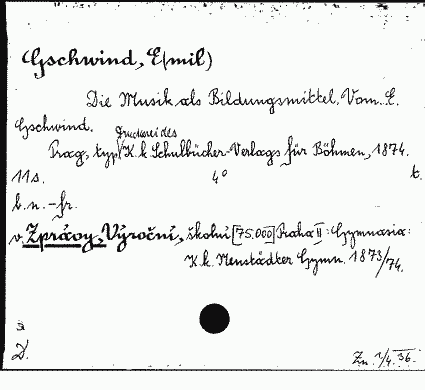 Gschwind, E(mil)
Die Musik als Bildungsmittel. Vom E.
Gschwind.
Druckerei des
Prag, typ. K. k. Schulbücher-Verlags für Böhmen, 1874.
11 s. 4° t.
b. n. - fr.
v. Zprávy, Výroční, školní [75.000] Praha II: Gymnasia:
K. k. Neustädter Gymn. 1873/74.
D.
Zn. 1/4. 36.